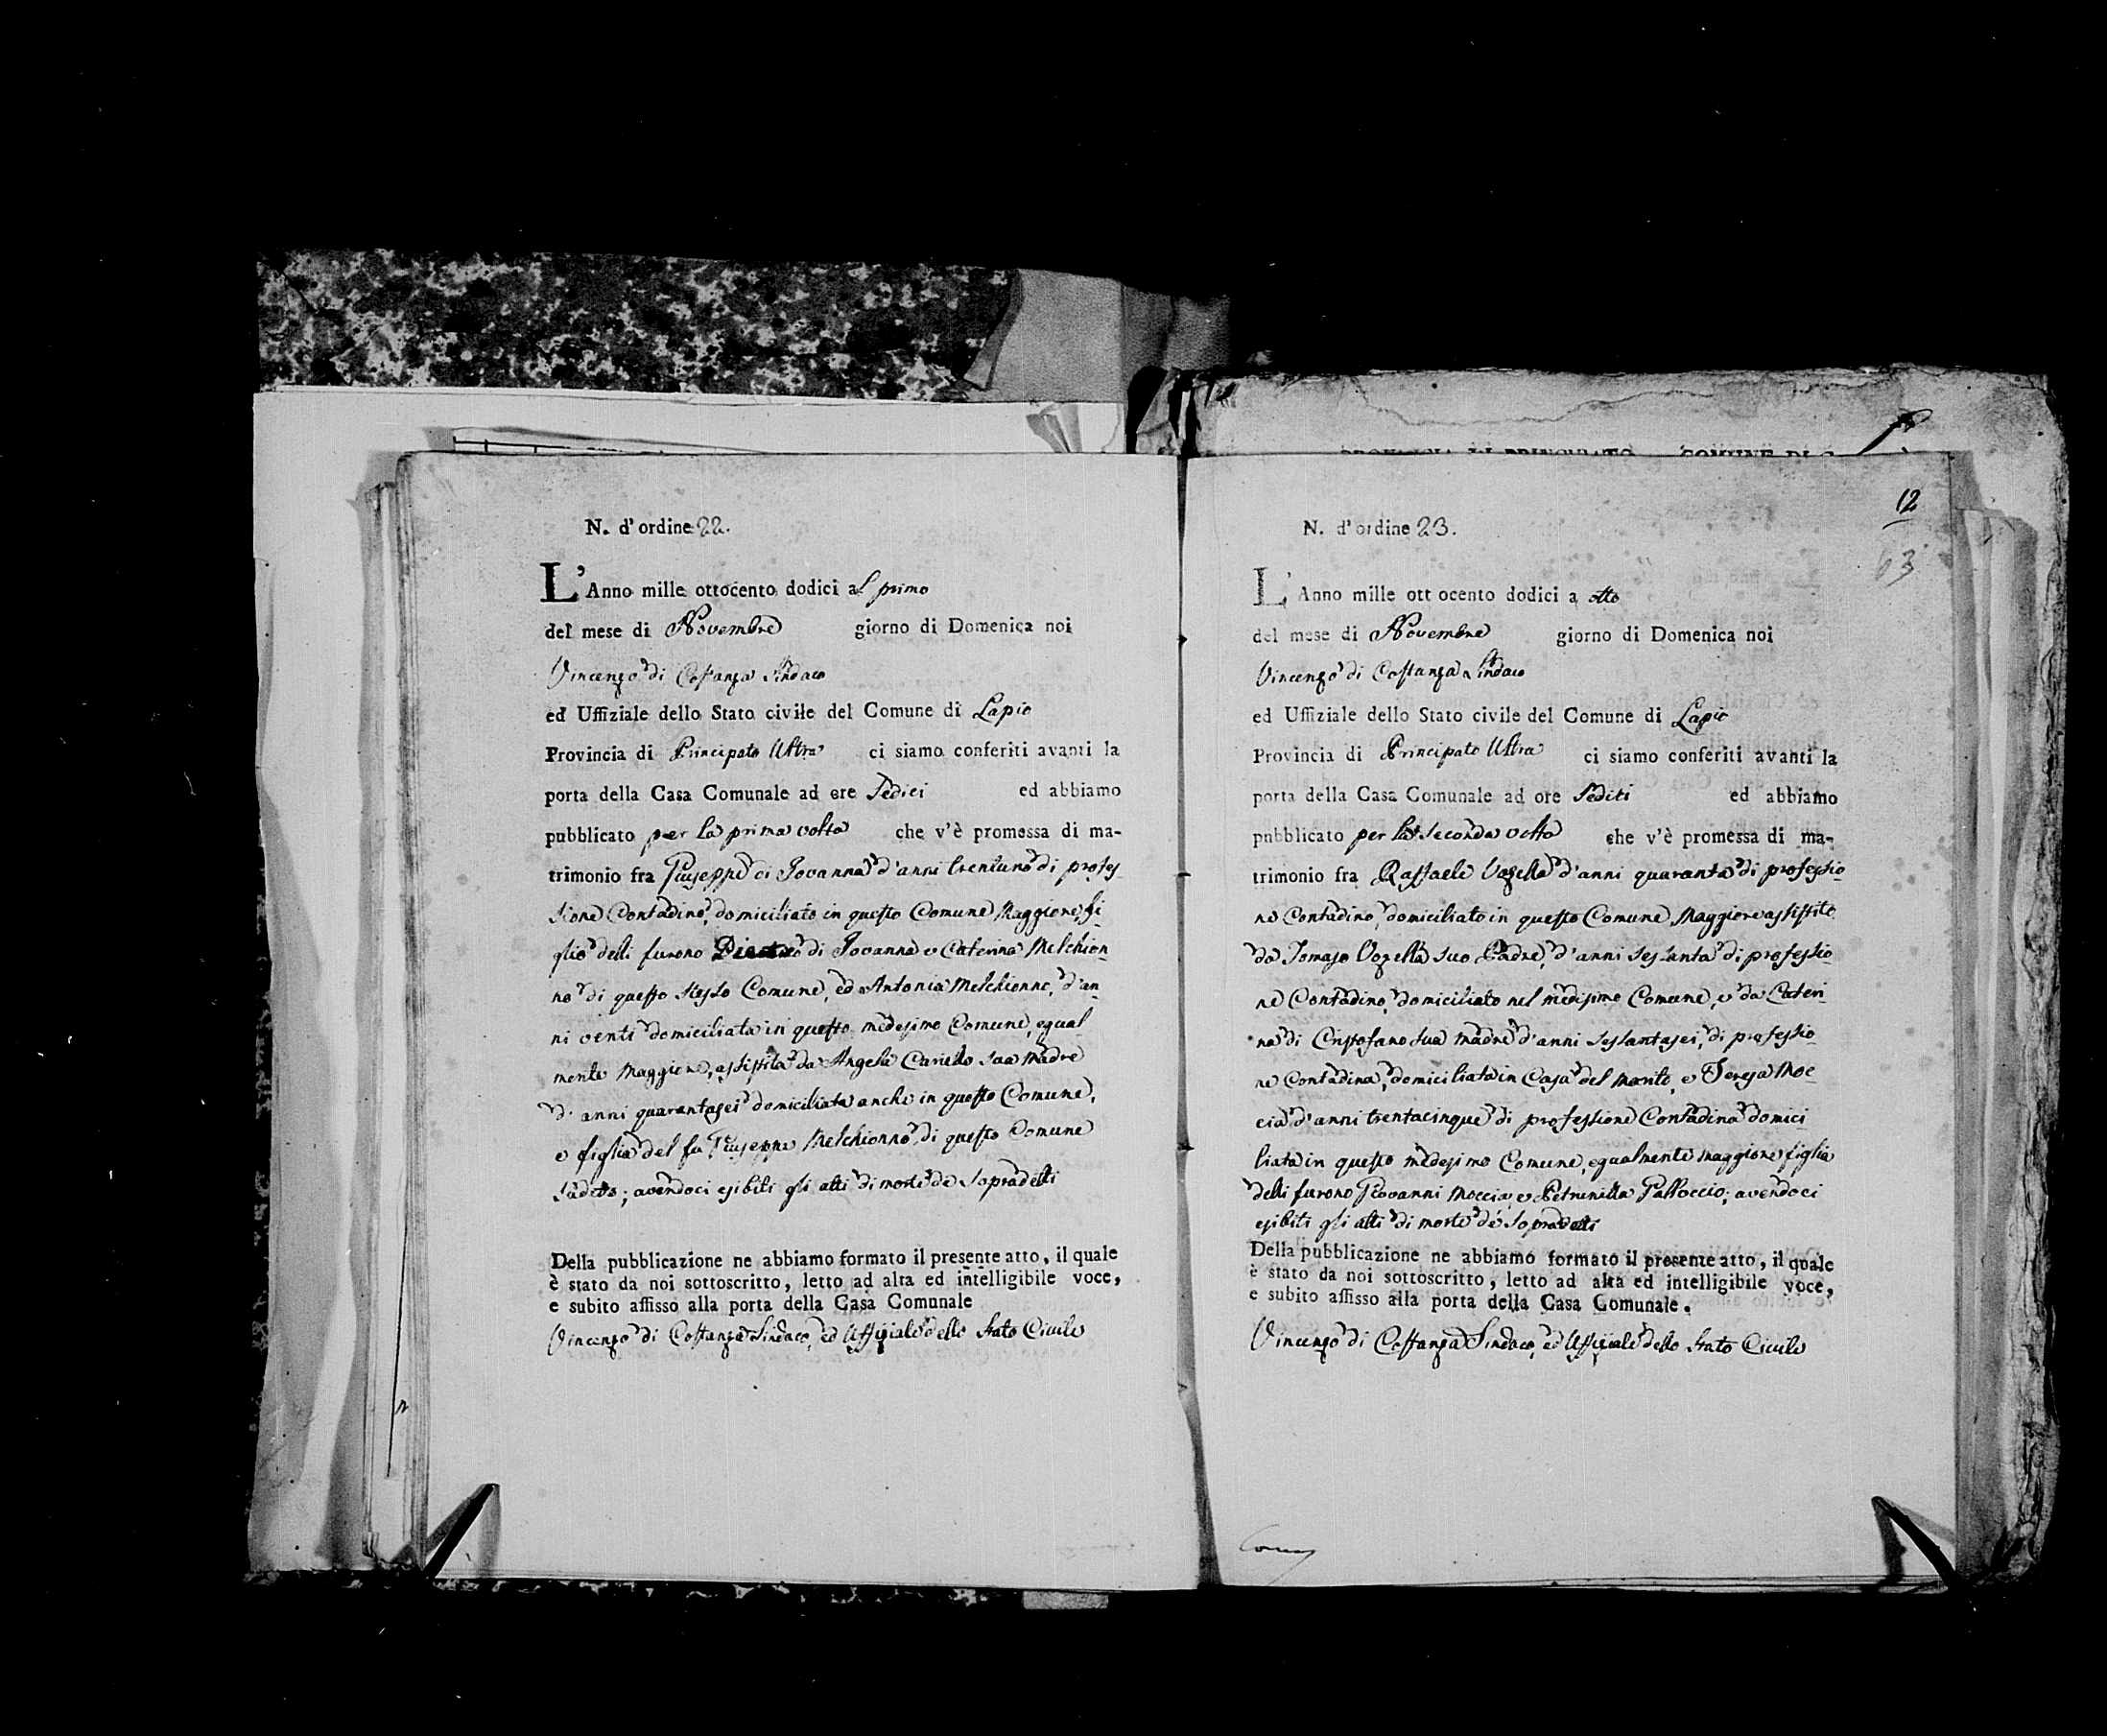 N. d'ordine 22.
L'Anno mille ottocento dodici al primo
del mese di Novembre giorno di Domenica noi
Vincenzo di Costanza Sindaco
ed Uffiziale dello Stato civile del Comune di Lapio
Provincia di Principato Ultra ci siamo conferiti avanti la
porta della Casa Comunale ad ore Sedici ed abbiamo
pubblicato per la prima volta che v'è promessa di ma-
trimonio fra Giuseppe di Iovanna d'anni trentuno di profes-
sione Contadino, domiciliato in questo Comune Maggiore, fi-
glio delli furono di Iovanna e Caterina Melchion-
no di questo stesso Comune, ed Antonia Melchionno, d'an-
ni venti domiciliata in questo medesimo Comune, egual
mente Maggiore, assistita da Angela Cariello sua madre
d'anni quarantasei domiciliata anche in questo Comune,
e figlia del fu Giuseppe Melchionno di questo Comune
sudetto; avendoci esibiti gli atti di morte de sopradetti
Della pubblicazione ne abbiamo formato il presente atto, il quale
è stato da noi sottoscritto, letto ad alta ed intelligibile voce,
e subito affisso alla porta della Casa Comunale
Vincenzo di Costanza Sindaco, ed Uffiziale dello Stato Civile
12
63
N. d'ordine 23.
L'Anno mille ottocento dodici a otto
del mese di Novembre giorno di Domenica noi
Vincenzo di Costanza Sindaco
ed Uffiziale dello Stato civile del Comune di Lapio
Provincia di Principato Ultra ci siamo conferiti avanti la
porta della Casa Comunale ad ore Sedici ed abbiamo
pubblicato per la seconda volta che v'è promessa di ma-
trimonio fra Raffaele Vozella d'anni quaranta di professio-
ne Contadino, domiciliato in questo Comune Maggiore assistito
da Tomaso Vozella suo Padre, d'anni sessanta di professio-
ne Contadino, domiciliato nel medesimo Comune, e da Cateri-
na di Cristofano sua madre d'anni sessantasei, di professio-
ne Contadina, domiciliata in Casa del marito, e Teresa Moc-
cia d'anni trentacinque di professione Contadina domici
liata in questo medesimo Comune, egualmente maggiore figlia
delli furono Giovanni Moccia, e Petrunilla Galloccio; avendoci
esibiti gli atti di morte de sopradetti
Della pubblicazione ne abbiamo formato il presente atto, il quale
è stato da noi sottoscritto, letto ad alta ed intelligibile voce,
e subito affisso alla porta della Casa Comunale.
Vincenzo di Costanza Sindaco, ed Uffiziale dello Stato Civile